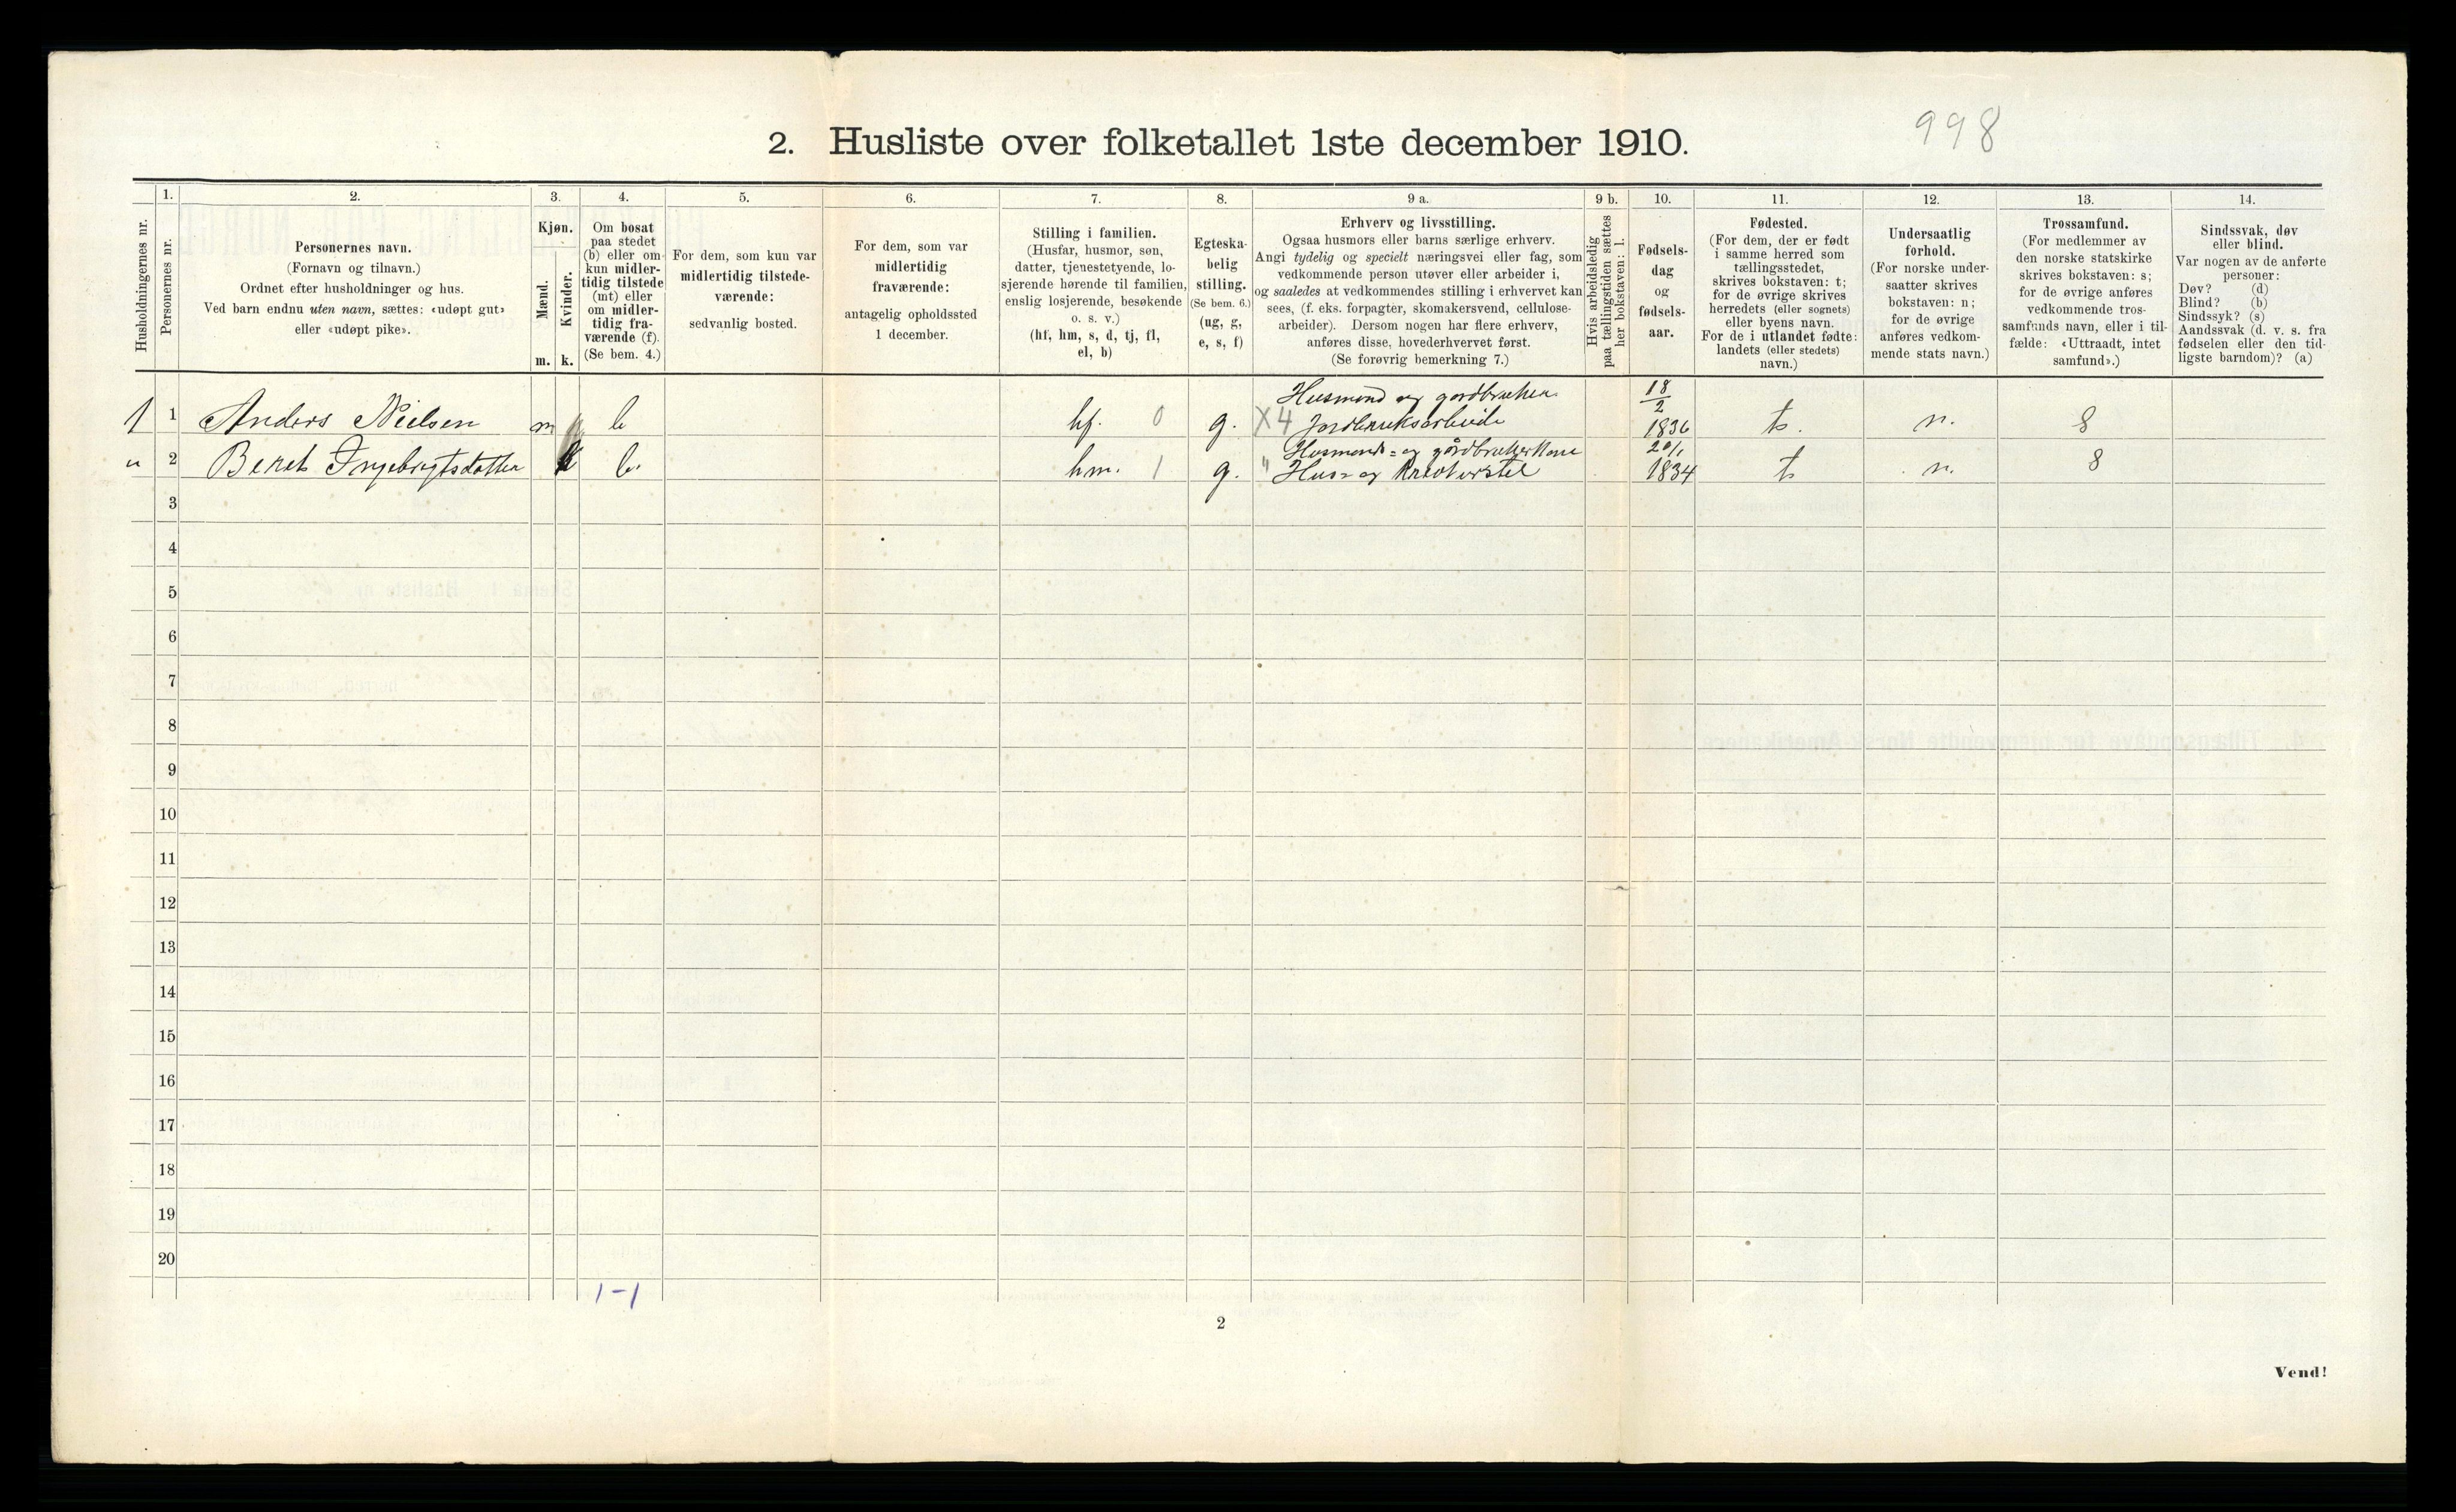 998
2. Husliste over folketallet 1ste december 1910.
Husholdningernes nr.
1.
Personernes nr.
2.
Personernes navn.
(Fornavn og tilnavn.)
Ordnet efter husholdninger og hus.
Ved barn endnu uten navn, sættes: «udøpt gut»
eller «udøpt pike».
3.
Kjøn.
Mænd.
m.
Kvinder.
k.
4.
Om bosat
paa stedet
(b) eller om
kun midler-
tidig tilstede
(mt) eller
om midler-
tidig fra-
værende (f).
(Se bem. 4.)
5.
For dem, som kun var
midlertidig tilstede-
værende:
sedvanlig bosted.
6.
For dem, som var
midlertidig
fraværende:
antagelig opholdssted
1 december.
7.
Stilling i familien.
(Husfar, husmor, søn,
datter, tjenestetyende, lo-
sjerende hørende til familien,
enslig losjerende, besøkende
o. s. v.)
(hf, hm, s, d, tj, fl,
el, b)
8.
Egteska-
belig
stilling.
(Se bem. 6.)
(ug, g,
e, s, f)
9 a.
Erhverv og livsstilling.
Ogsaa husmors eller barns særlige erhverv.
Angi tydelig og specielt næringsvei eller fag, som
vedkommende person utøver eller arbeider i,
og saaledes at vedkommendes stilling i erhvervet kan
sees, (f. eks. forpagter, skomakersvend, cellulose-
arbeider). Dersom nogen har flere erhverv,
anføres disse, hovederhvervet først.
(Se forøvrig bemerkning 7.)
9 b.
Hvis arbeidsledig
paa tællingstiden sættes
her bokstaven: l.
10.
Fødsels-
dag
og
fødsels-
aar.
11.
Fødested.
(For dem, der er født
i samme herred som
tællingsstedet,
skrives bokstaven: t;
for de øvrige skrives
herredets (eller sognets)
eller byens navn.
For de i utlandet fødte:
landets (eller stedets)
navn.)
12.
Undersaatlig
forhold.
(For norske under-
saatter skrives
bokstaven: n;
for de øvrige
anføres vedkom-
mende stats navn.)
13.
Trossamfund.
(For medlemmer av
den norske statskirke
skrives bokstaven: s;
for de øvrige anføres
vedkommende tros-
samfunds navn, eller i til-
fælde: «Uttraadt, intet
samfund».)
14.
Sindssvak, døv
eller blind.
Var nogen av de anførte
personer:
Døv? (d)
Blind? (b)
Sindssyk? (s)
Aandssvak (d. v. s. fra
fødselen eller den tid-
ligste barndom)? (a)
Husmand og gordbruker 18/2
1 1 Anders Nielsen m b hf. 0 g. X4 Jordbruksarbeide 1836 t. n. s
Husmands= og gårdbrukerkone 20/1
" 2 Beret Ingebrigtsdatter k b. hm. 1 g. " Hus= og Kreaturstel 1834 t n. s
3
4
5
6
7
8
9
10
11
12
13
14
15
16
17
18
19
20
1-1
2
Vend!